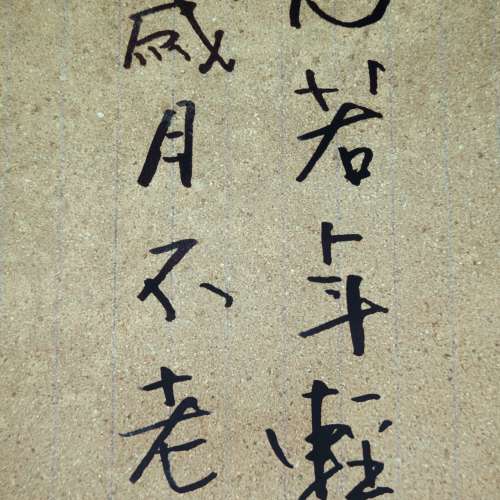 若年輕
歲月不老